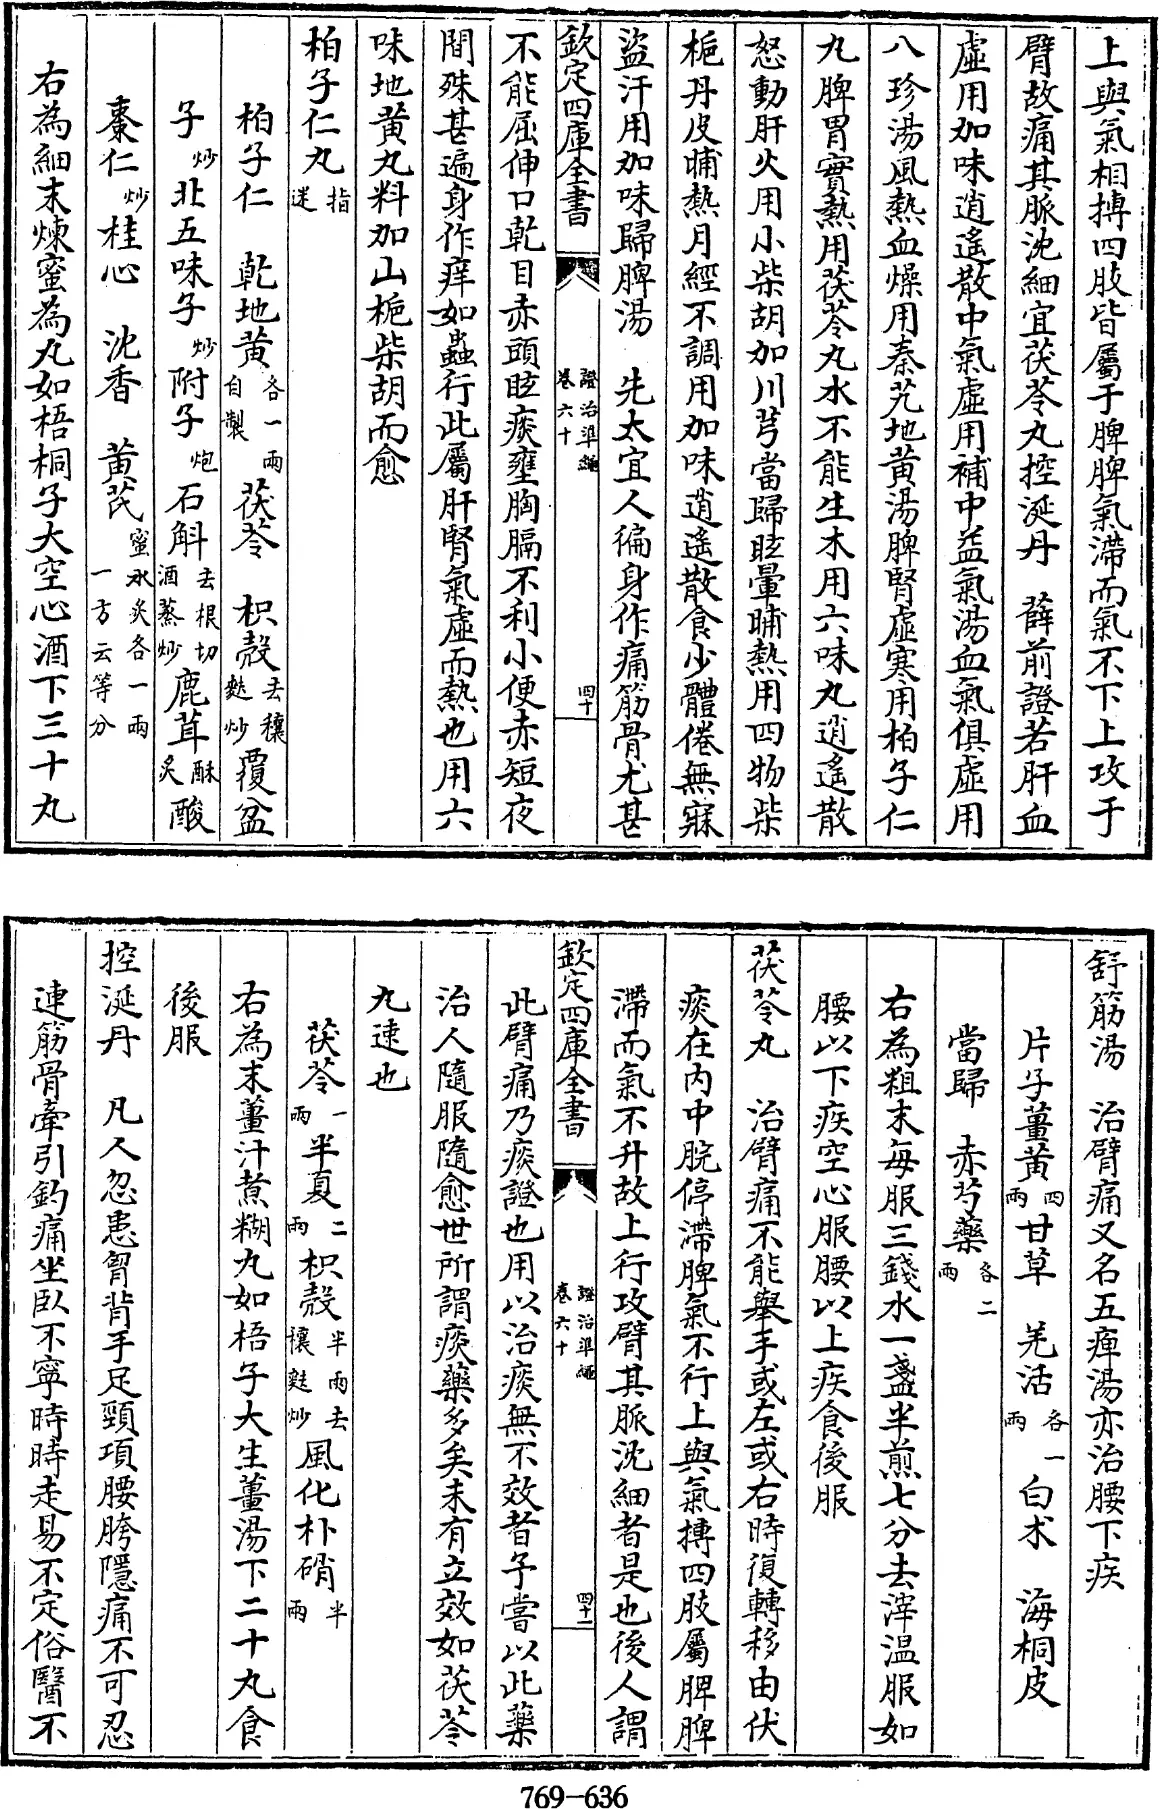 上與氣相搏四肢皆屬于脾脾氣滯而氣不下上攻于
臂故痛其脈沈細宜茯苓丸控涎丹　薛前證若肝血
虛用加味逍遙散中氣虛用補中益氣湯血氣俱虛用
八珍湯風熱血燥用秦艽地黄湯脾腎虛寒用柏子仁
丸脾胃實熱用茯苓丸水不能生木用六味丸逍遙散
怒動肝火用小柴胡加川芎當歸眩暈晡熱用四物柴
梔丹皮晡熱月經不調用加味逍遙散食少體倦無寐
盜汗用加味歸脾湯　先太宜人徧身作痛筋骨尤甚
欽定四庫全書　證治準繩卷六十　四十
不能屈伸口乾目赤頭眩痰壅胸膈不利小便赤短夜
間殊甚遍身作痒如蟲行此屬肝腎氣虛而熱也用六
味地黄丸料加山梔柴胡而愈
柏子仁丸指迷
柏子仁　乾地黄各一兩自製　茯苓　枳殼去穰麩炒覆盆
子炒北五味子炒附子炮石斛去根切酒蒸炒鹿茸酥炙酸
棗仁炒桂心　沈香　黄芪蜜水炙各一兩一方云等分
右為細末煉蜜為丸如梧桐子大空心酒下三十丸
舒筋湯　治臂痛又名五痺湯亦治腰下疾
片子薑黄四兩甘草　羌活各一兩白朮　海桐皮
當歸　赤芍藥各二兩
右為粗末每服三錢水一盞半煎七分去滓温服如
腰以下疾空心服腰以上疾食後服
茯苓丸　治臂痛不能舉手或左或右時復轉移由伏
痰在内中脘停滯脾氣不行上與氣搏四肢屬脾脾
滯而氣不升故上行攻臂其脈沈細者是也後人謂
欽定四庫全書　證治準繩卷六十　四十一
此臂痛乃痰證也用以治痰無不效者予嘗以此藥
治人隨服隨愈世所謂痰藥多矣未有立效如茯苓
丸速也
茯苓一兩半夏二兩枳殼半兩去穰麩炒風化朴硝半兩
右為末薑汁煮糊丸如梧子大生薑湯下二十丸食
後服
控涎丹　凡人忽患胷背手足頸項腰胯隱痛不可忍
連筋骨牽引釣痛坐臥不寧時時走易不定俗醫不
769-636